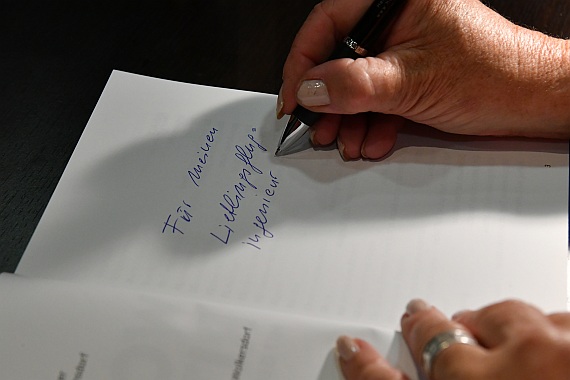 Für meinen
Lieblingsflug-
ingenieur